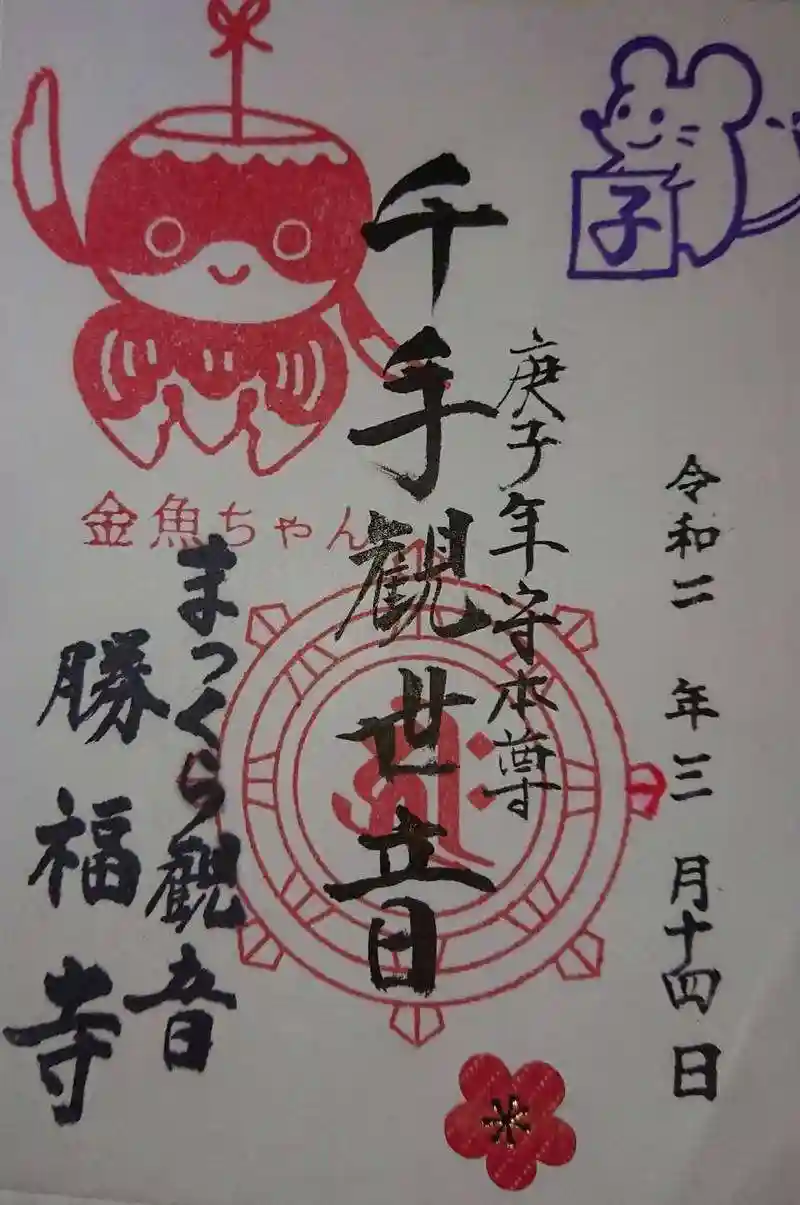 令和二年三月十四日
子
庚子年守本尊
千手観世音
金魚ちゃん
まっくら観音
勝福寺